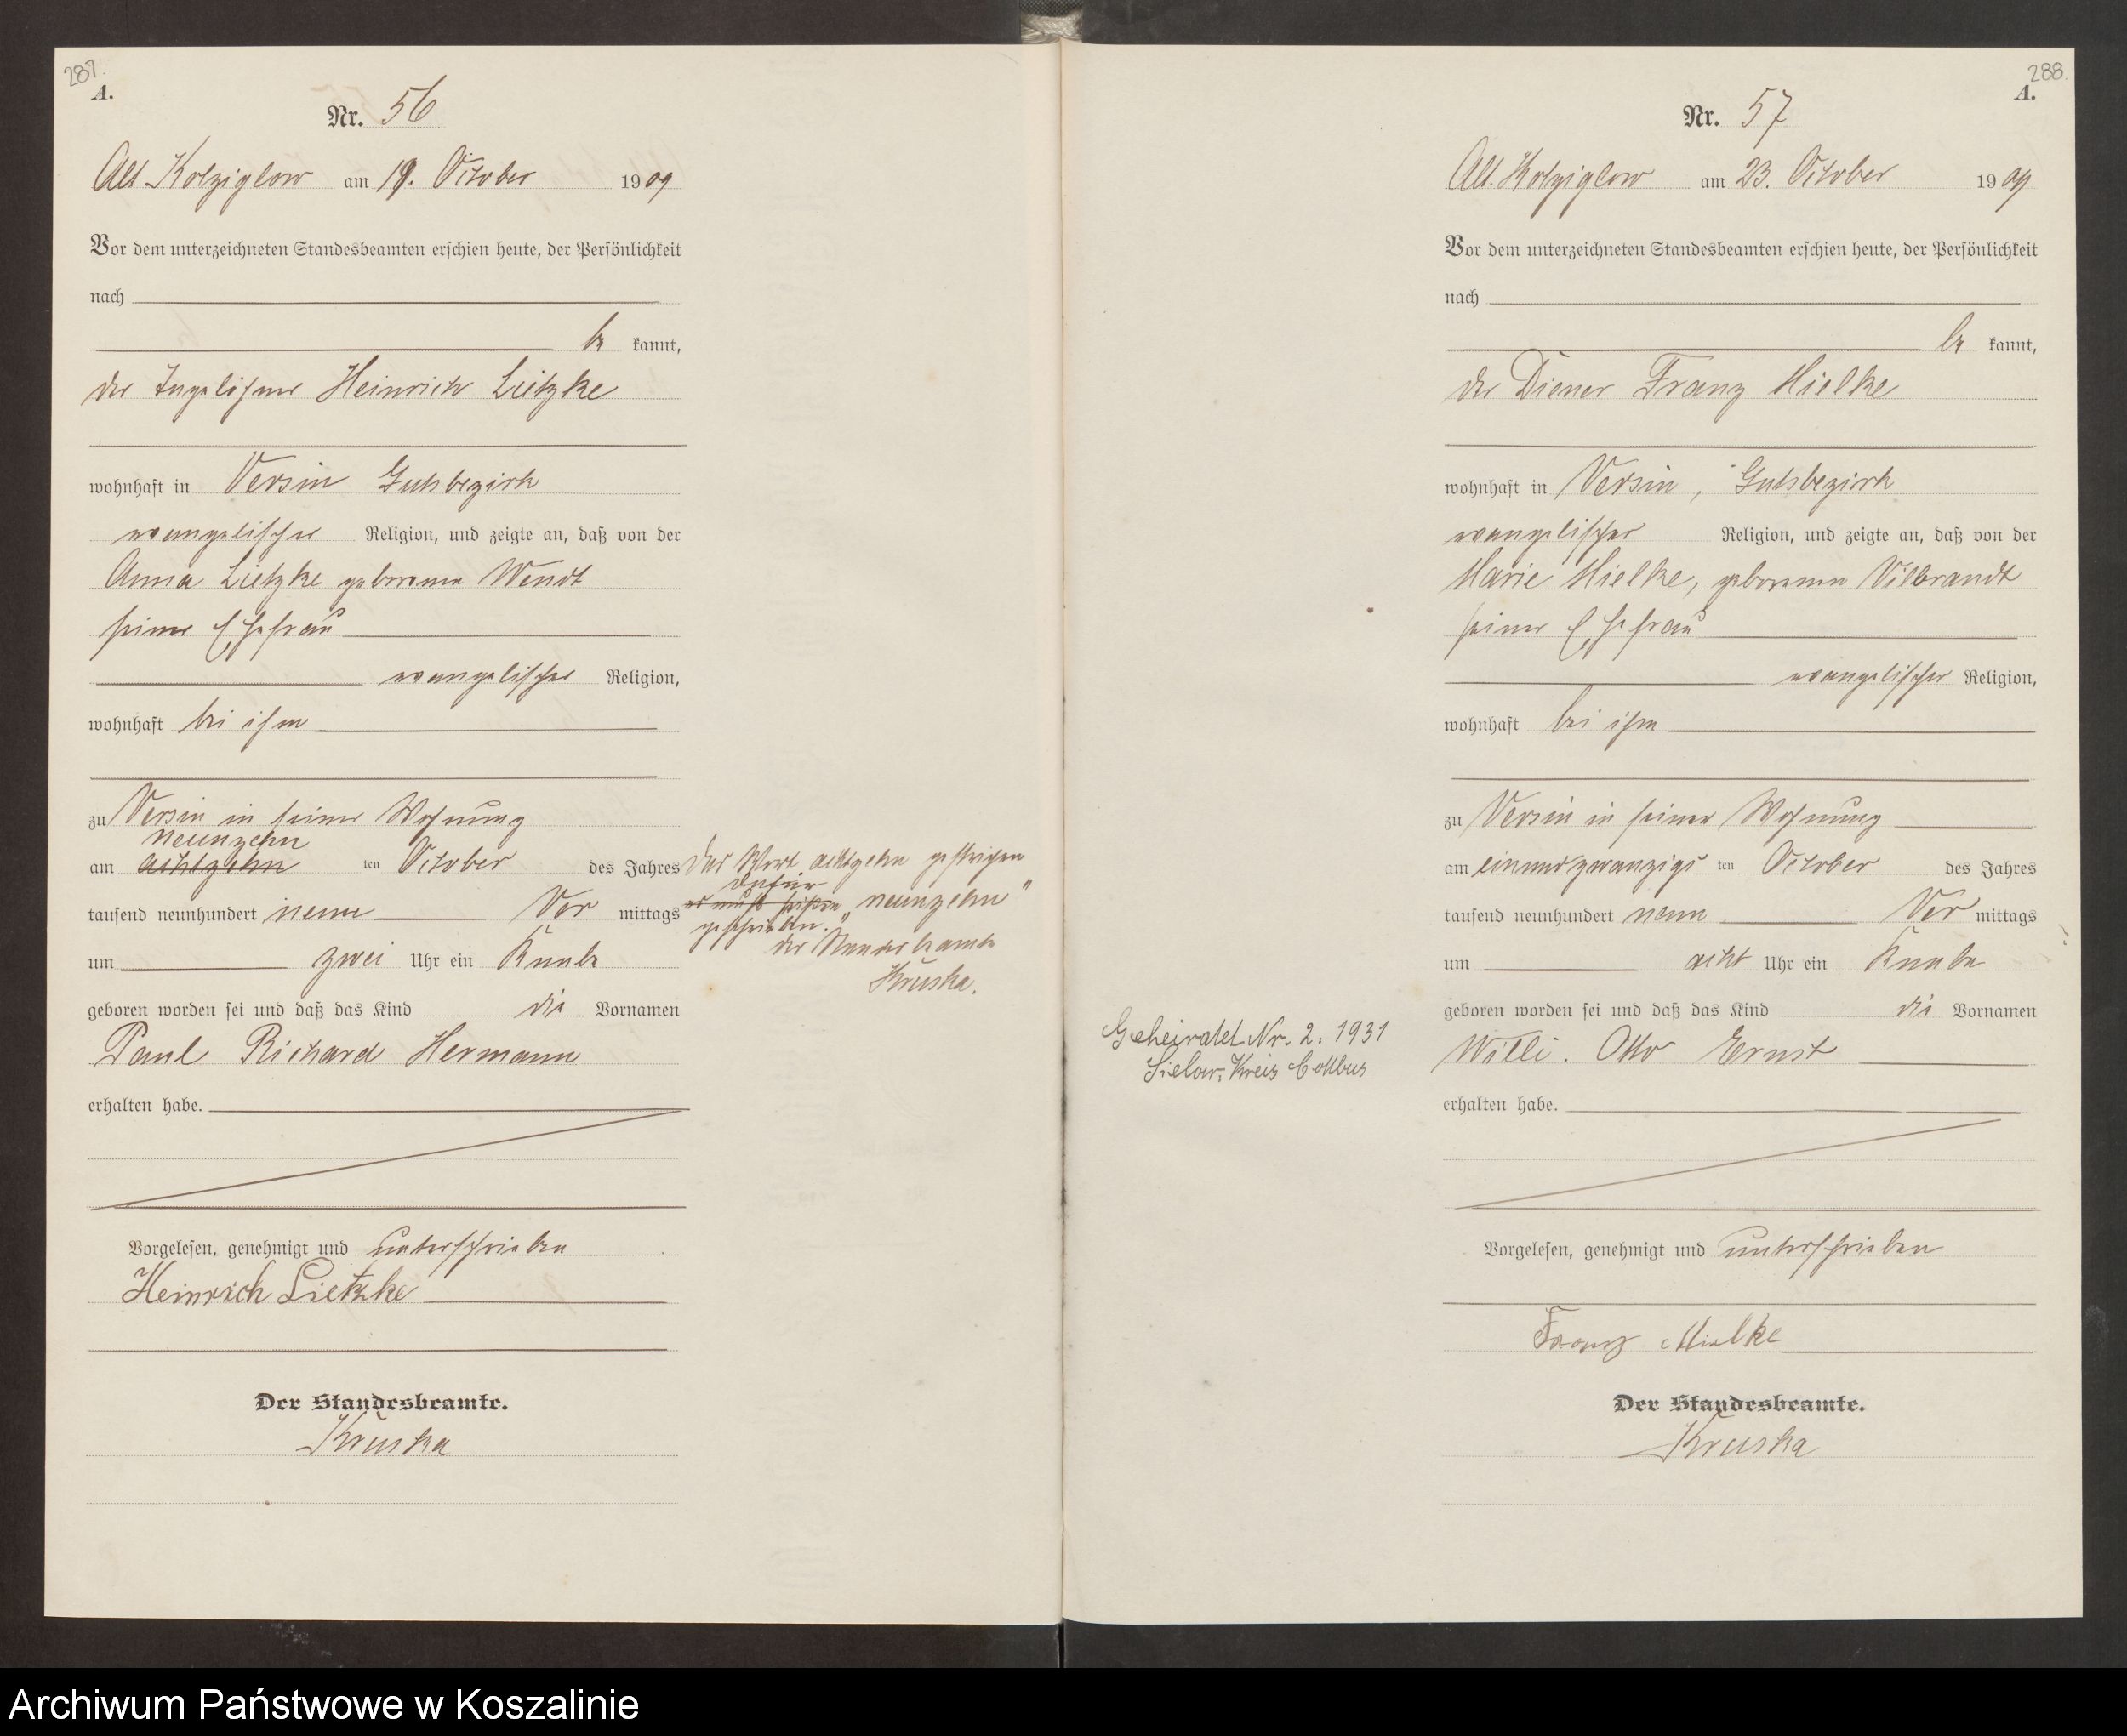 287.
A.
Nr. 56
Alt Kolziglow am 19. October 1909
Vor dem unterzeichneten Standesbeamten erschien heute, der Persönlichkeit
nach
be kannt,
der Tagelöhner Heinrich Lietzke
wohnhaft in Versin Gutsbezirk
evangelischer Religion, und zeigte an, daß von der
Anna Lietzke geborenen Wendt
seiner Ehefrau
evangelischer Religion,
wohnhaft bei ihm
zu Versin in seiner Wohnung
neunzehn
am achtzehn ten October des Jahres
tausend neunhundert neun Vor mittags
um zwei Uhr ein Knabe
geboren worden sei und daß das Kind die Vornamen
Paul Richard Hermann
erhalten habe.
Vorgelesen, genehmigt und unterschrieben
Heinrich Lietzke
Der Standesbeamte.
Kruska
Das Wort achtzehn gestrichen
dafür
es muß heißen „neunzehn"
geschrieben.
der Standesbeamte
Kruska.
288.
A.
Nr. 57
Alt. Kolziglow am 23. October 1909
Vor dem unterzeichneten Standesbeamten erschien heute, der Persönlichkeit
nach
be kannt,
der Diener Franz Mielke
wohnhaft in Versin, Gutsbezirk
evangelischer Religion, und zeigte an, daß von der
Marie Mielke, geborenen Vilbrandt
seiner Ehefrau
evangelischer Religion,
wohnhaft bei ihm
zu Versin in seiner Wohnung
am einundzwanzigs ten October des Jahres
tausend neunhundert neun Vor mittags
um acht Uhr ein Knabe
geboren worden sei und daß das Kind die Vornamen
Willi. Otto Ernst
erhalten habe.
Vorgelesen, genehmigt und unterschrieben
Franz Mielke
Der Standesbeamte.
Kruska
Geheiratet Nr. 2. 1931
Sielow, Kreis Cottbus
Archiwum Państwowe w Koszalinie